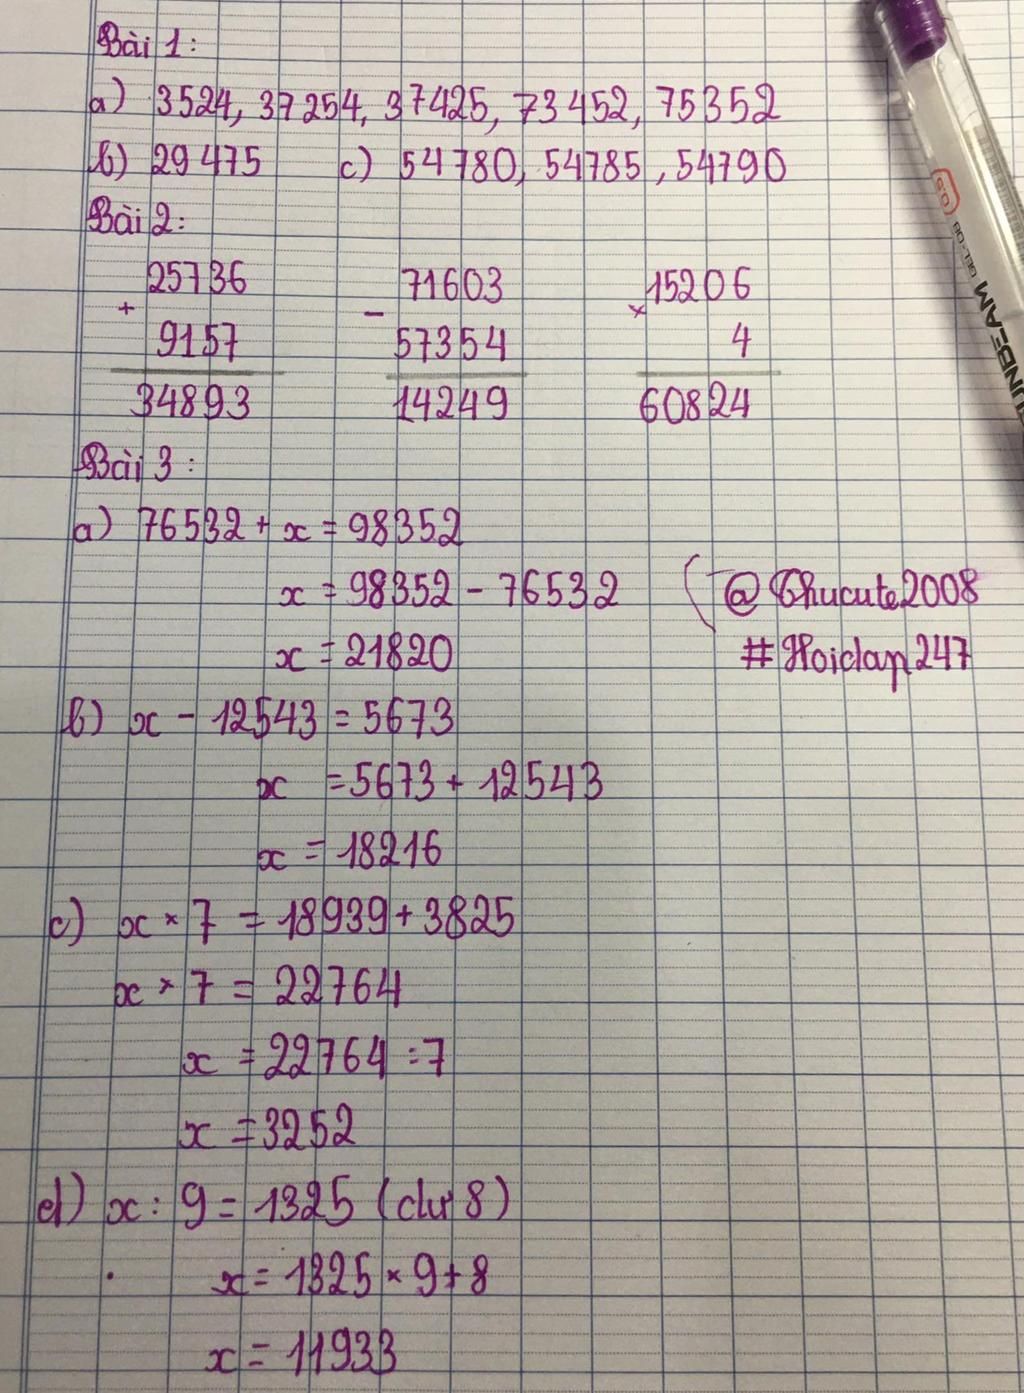 Bài 1:
a) 3524, 37254, 37425, 73452, 75352
b) 29475 c) 54780, 54785, 54790
Bài 2:
25736 71603 15206
+ - ×
9157 57354 4
34893 14249 60824
Bài 3:
a) 76532 + x = 98352
x = 98352 - 76532
x = 21820
@Thucute2008
#Hoidap247
b) x - 12543 = 5673
x = 5673 + 12543
x = 18216
c) x × 7 = 18939 + 3825
x × 7 = 22764
x = 22764 : 7
x = 3252
d) x : 9 = 1325 (dư 8)
x = 1325 × 9 + 8
x = 11933
0.5
GEL-08
SUNBEAM